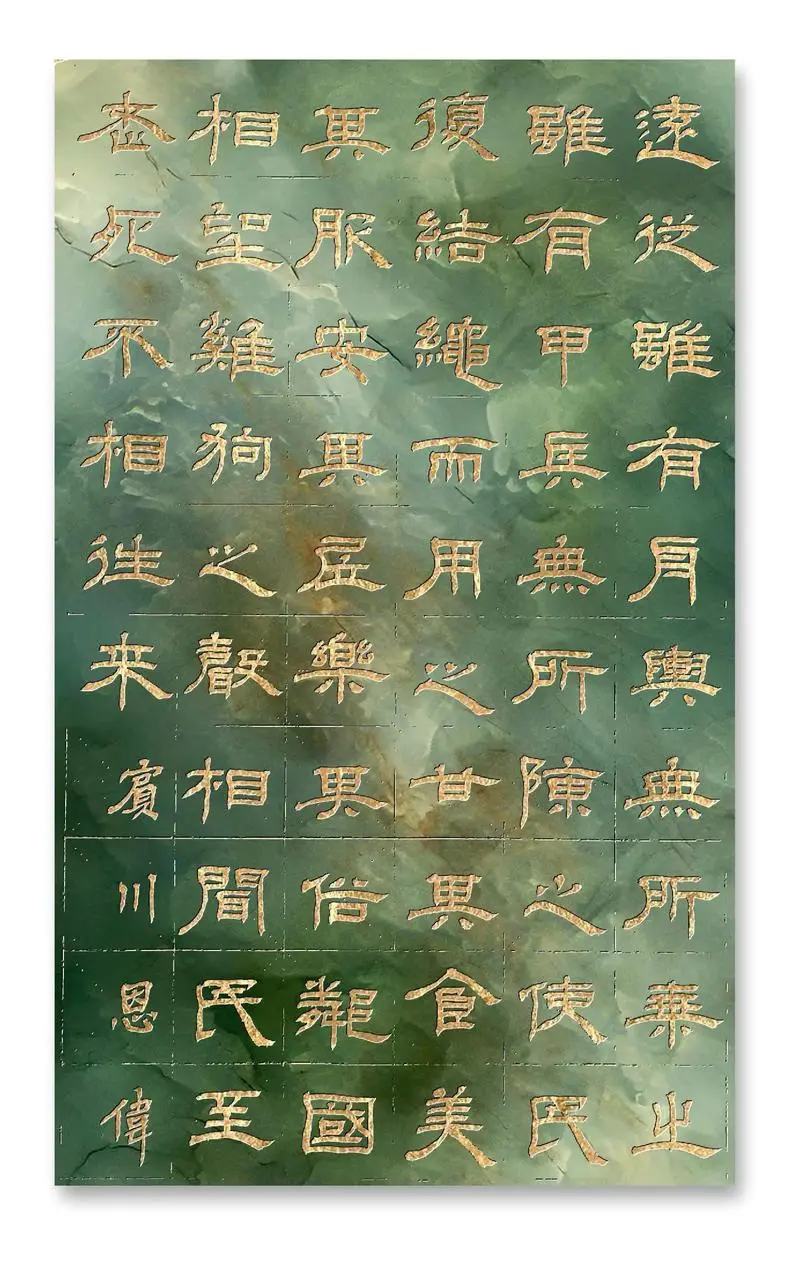 遠徙雖有舟輿無所乘之
雖有甲兵無所陳之使民
復結繩而用之甘其食美
其服安其居樂其俗鄰國
相望雞狗之聲相聞民至
老死不相往来賓川恩偉